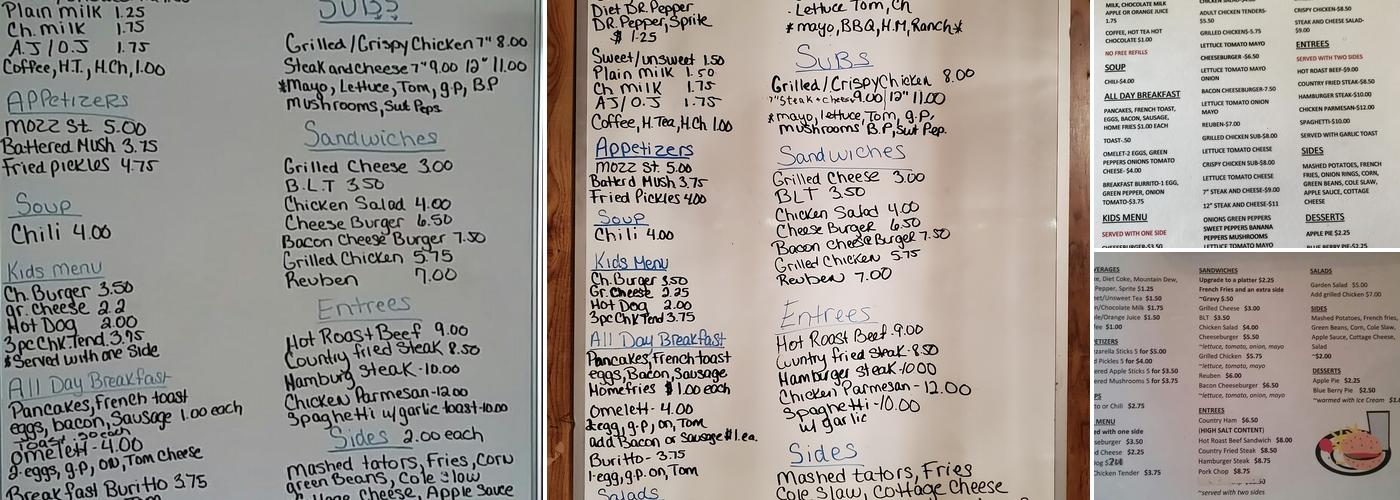 Plain milk 1.25
Ch. milk 1.75
A.J / O.J 1.75
Coffee, H.T., H.Ch, 1.00
APPetizers
Mozz St. 5.00
Battered Mush 3.75
Fried pickles 4.75
Soup
Chili 4.00
Kids menu
Ch. Burger 3.50
gr. cheese 2.2
Hot Dog 2.00
3pc Chk. Tend. 3.95
*Served with one Side
All Day Breakfast
Pancakes, French toast
eggs, bacon, Sausage 1.00 each
Omelett - 4.00
2-eggs, g.P, on, Tom cheese
Breakfast Buritto 3.75
SUBS
Grilled/Crispy Chicken 7" 8.00
Steak and cheese 7" 9.00 12" 11.00
*Mayo, Lettuce, Tom, g.P, B.P
mushrooms, Swt Peps.
Sandwiches
Grilled Cheese 3.00
B.L.T 3.50
Chicken Salad 4.00
Cheese Burger 6.50
Bacon Cheese Burger 7.50
Grilled Chicken 5.75
Reuben 7.00
Entrees
Hot Roast Beef 9.00
Country fried Steak 8.50
Hamburg Steak - 10.00
Chicken Parmesan - 12.00
Spaghetti w/garlic toast - 10.00
Sides 2.00 each
Mashed tators, Fries, Corn
green Beans, Cole Slow
Cheese, Apple Sauce
Diet DR. Pepper
DR. Pepper, Sprite
$ 1.25
Sweet/unsweet 1.50
Plain milk 1.50
Ch milk 1.75
AJ/O.J 1.75
Coffee, H.Tea, H.Ch 1.00
Appetizers
Mozz St. 5.00
Batterd Mush 3.75
Fried Pickles 4.00
Soup
Chili 4.00
Kids Menu
Ch. Burger 3.50
Gr. Cheese 2.25
Hot Dog 2.00
3pc Chk Tend 3.75
All Day Breakfast
Pancakes, French toast
eggs, Bacon, Sausage
Homefries $1.00 each
Omelett - 4.00
2-egg, g.p, on, Tom
add Bacon or Sausage $1.ea.
Buritto - 3.75
1-egg, g.p. on, Tom
Salads
- Lettuce Tom, Ch
*mayo, BBQ, H.M, Ranch*
SUBS
Grilled/Crispy Chicken 8.00
7" Steak + cheese 9.00 / 12" 11.00
*mayo, lettuce, Tom, g.p,
mushrooms B.P, Swt Pep.
Sandwiches
Grilled Cheese 3.00
BLT 3.50
Chicken Salad 4.00
Cheese Burger 6.50
Bacon Cheese Burger 7.50
Grilled Chicken 5.75
Reuben 7.00
Entrees
Hot Roast Beef - 9.00
Cuntry fried Steak - 8.50
Hamburger Steak - 10.00
Chicken Parmesan - 12.00
Spaghetti - 10.00
w/garlic
Sides
Mashed tators, Fries
Cole Slaw, Cottage Cheese
MILK, CHOCOLATE MILK
APPLE OR ORANGE JUICE
1.75
COFFEE, HOT TEA HOT
CHOCOLATE $1.00
NO FREE REFILLS
SOUP
CHILI-$4.00
ALL DAY BREAKFAST
PANCAKES, FRENCH TOAST,
EGGS, BACON, SAUSAGE,
HOME FRIES $1.00 EACH
TOAST-.50
OMELET-2 EGGS, GREEN
PEPPERS ONIONS TOMATO
CHEESE- $4.00
BREAKFAST BURRITO-1 EGG,
GREEN PEPPER, ONION
TOMATO-$3.75
KIDS MENU
SERVED WITH ONE SIDE
CHEESEBURGER-$3.50
ADULT CHICKEN TENDERS-
$5.50
GRILLED CHICKEN-$5.75
LETTUCE TOMATO MAYO
CHEESEBURGER -$6.50
LETTUCE TOMATO MAYO
ONION
BACON CHEESEBURGER-7.50
LETTUCE TOMATO ONION
MAYO
REUBEN-$7.00
GRILLED CHICKEN SUB-$8.00
LETTUCE TOMATO CHEESE
CRISPY CHICKEN SUB-$8.00
LETTUCE TOMATO CHEESE
7" STEAK AND CHEESE-$9.00
12" STEAK AND CHEESE-$11
ONIONS GREEN PEPPERS
SWEET PEPPERS BANANA
PEPPERS MUSHROOMS
LETTUCE TOMATO MAYO
CRISPY CHICKEN-$8.50
STEAK AND CHEESE SALAD-
$9.00
ENTREES
SERVED WITH TWO SIDES
HOT ROAST BEEF-$9.00
COUNTRY FRIED STEAK-$8.50
HAMBURGER STEAK-$10.00
CHICKEN PARMESAN-$12.00
SPAGHETTI-$10.00
SERVED WITH GARLIC TOAST
SIDES
MASHED POTATOES, FRENCH
FRIES, ONION RINGS, CORN,
GREEN BEANS, COLE SLAW,
APPLE SAUCE, COTTAGE
CHEESE
DESSERTS
APPLE PIE $2.25
BLUE BERRY PIE-$2.25
VERAGES
e, Diet Coke, Mountain Dew,
Pepper, Sprite $1.25
et/Unsweet Tea $1.50
/Chocolate Milk $1.75
le/Orange Juice $1.50
fee $1.00
PETIZERS
zarella Sticks 5 for $5.00
d Pickles 5 for $4.00
ered Apple Sticks 5 for $3.50
ered Mushrooms 5 for $3.75
PS
to or Chili $2.75
MENU
ed with one side
seburger $3.50
d Cheese $2.25
Chicken Tender $3.75
SANDWICHES
Upgrade to a platter $2.25
French Fries and an extra side
~Gravy $.50
Grilled Cheese $3.00
BLT $3.50
Chicken Salad $4.00
Cheeseburger $5.50
~lettuce, tomato, onion, mayo
Grilled Chicken $5.75
~lettuce, tomato, mayo
Reuben $6.00
Bacon Cheeseburger $6.50
~lettuce, tomato, onion, mayo
ENTREES
Country Ham $6.50
(HIGH SALT CONTENT)
Hot Roast Beef Sandwich $8.00
Country Fried Steak $8.50
Hamburger Steak $8.75
Pork Chop $8.75
~served with two sides
SALADS
Garden Salad $5.00
Add grilled Chicken $7.00
SIDES
Mashed Potatoes, French fries,
Green Beans, Corn, Cole Slaw,
Apple Sauce, Cottage Cheese,
Salad
~$2.00
DESSERTS
Apple Pie $2.25
Blue Berry Pie $2.50
~warmed with Ice Cream